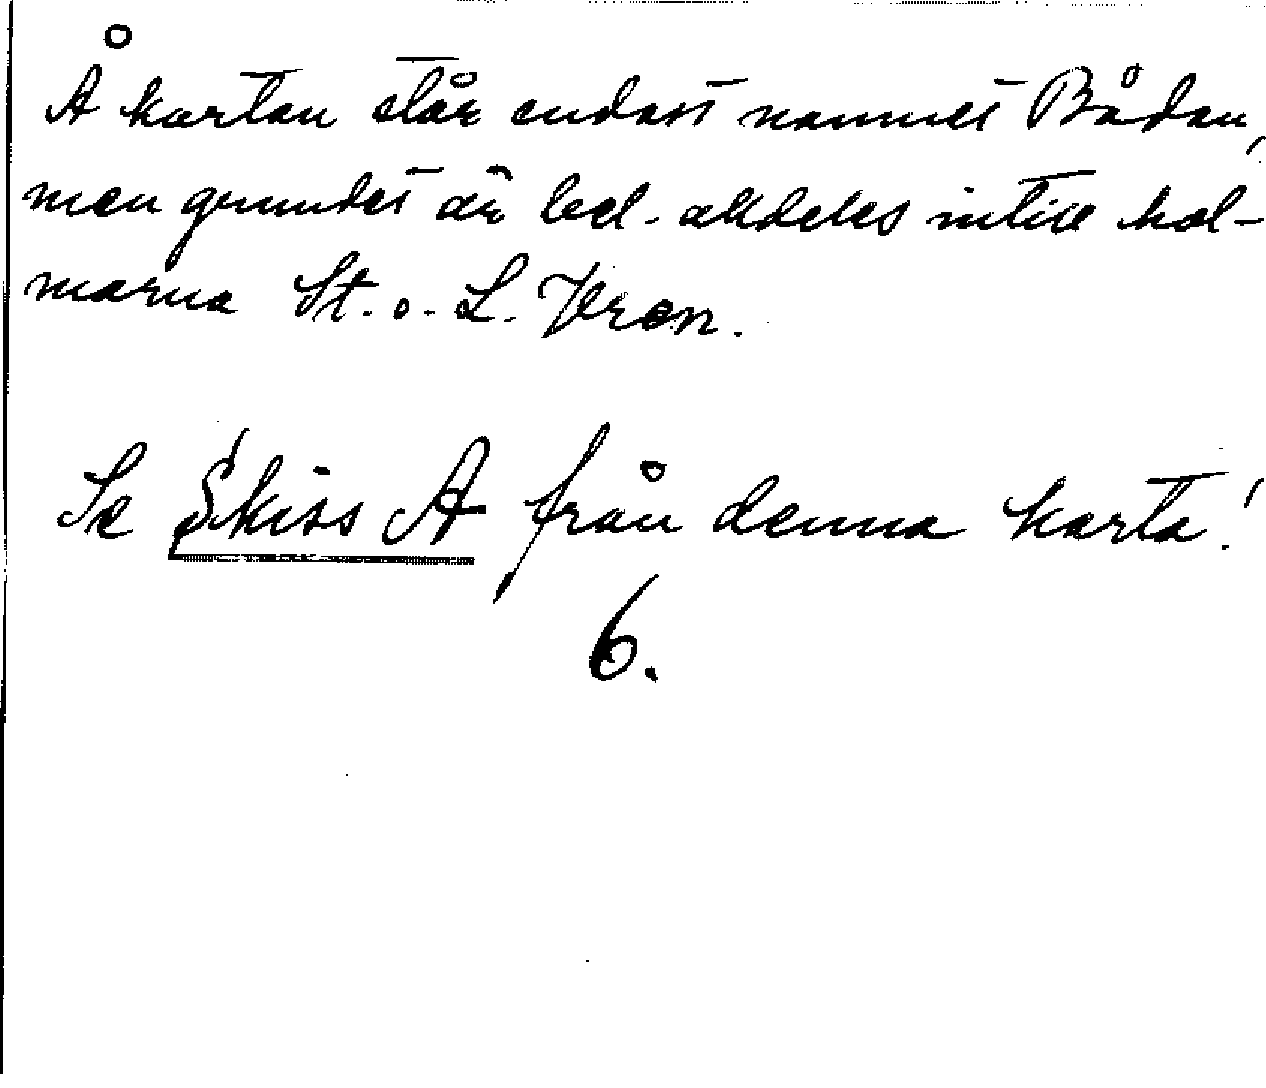 Å kartan står endast namnet Bådan,
men grundet är bel. alldeles intill hol-
marna St. o. L. Vran.
Se Skiss A från denna karta!
6.